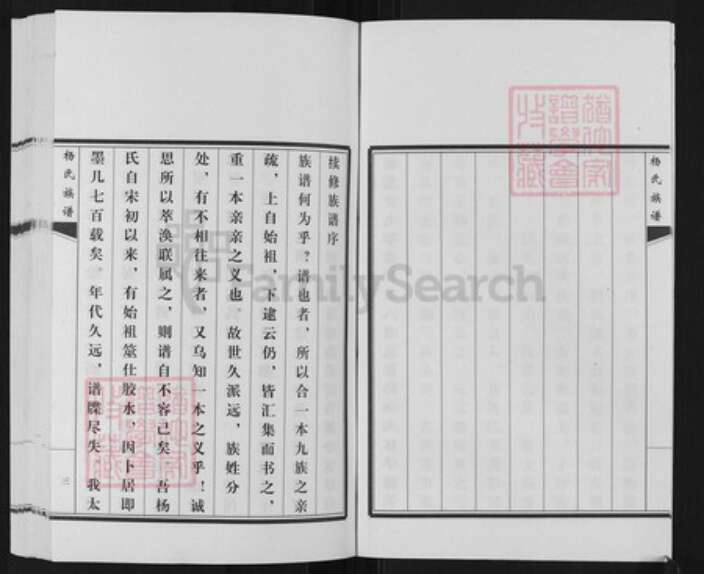 杨氏族谱
续修族谱序
族谱何为乎？谱也者，所以合一本九族之亲
疏，上自始祖，下逮云仍，皆汇集而书之，
重一本亲亲之义也。故世久派远，族姓分
处，有不相往来者，又乌知一本之义乎！诚
思所以萃涣联属之，则谱自不容已矣。吾杨
氏自宋初以来，有始祖筮仕胶水，因卜居即
墨几七百载矣。年代久远，谱牒尽失。我太
杨氏族谱
三
FamilySearch